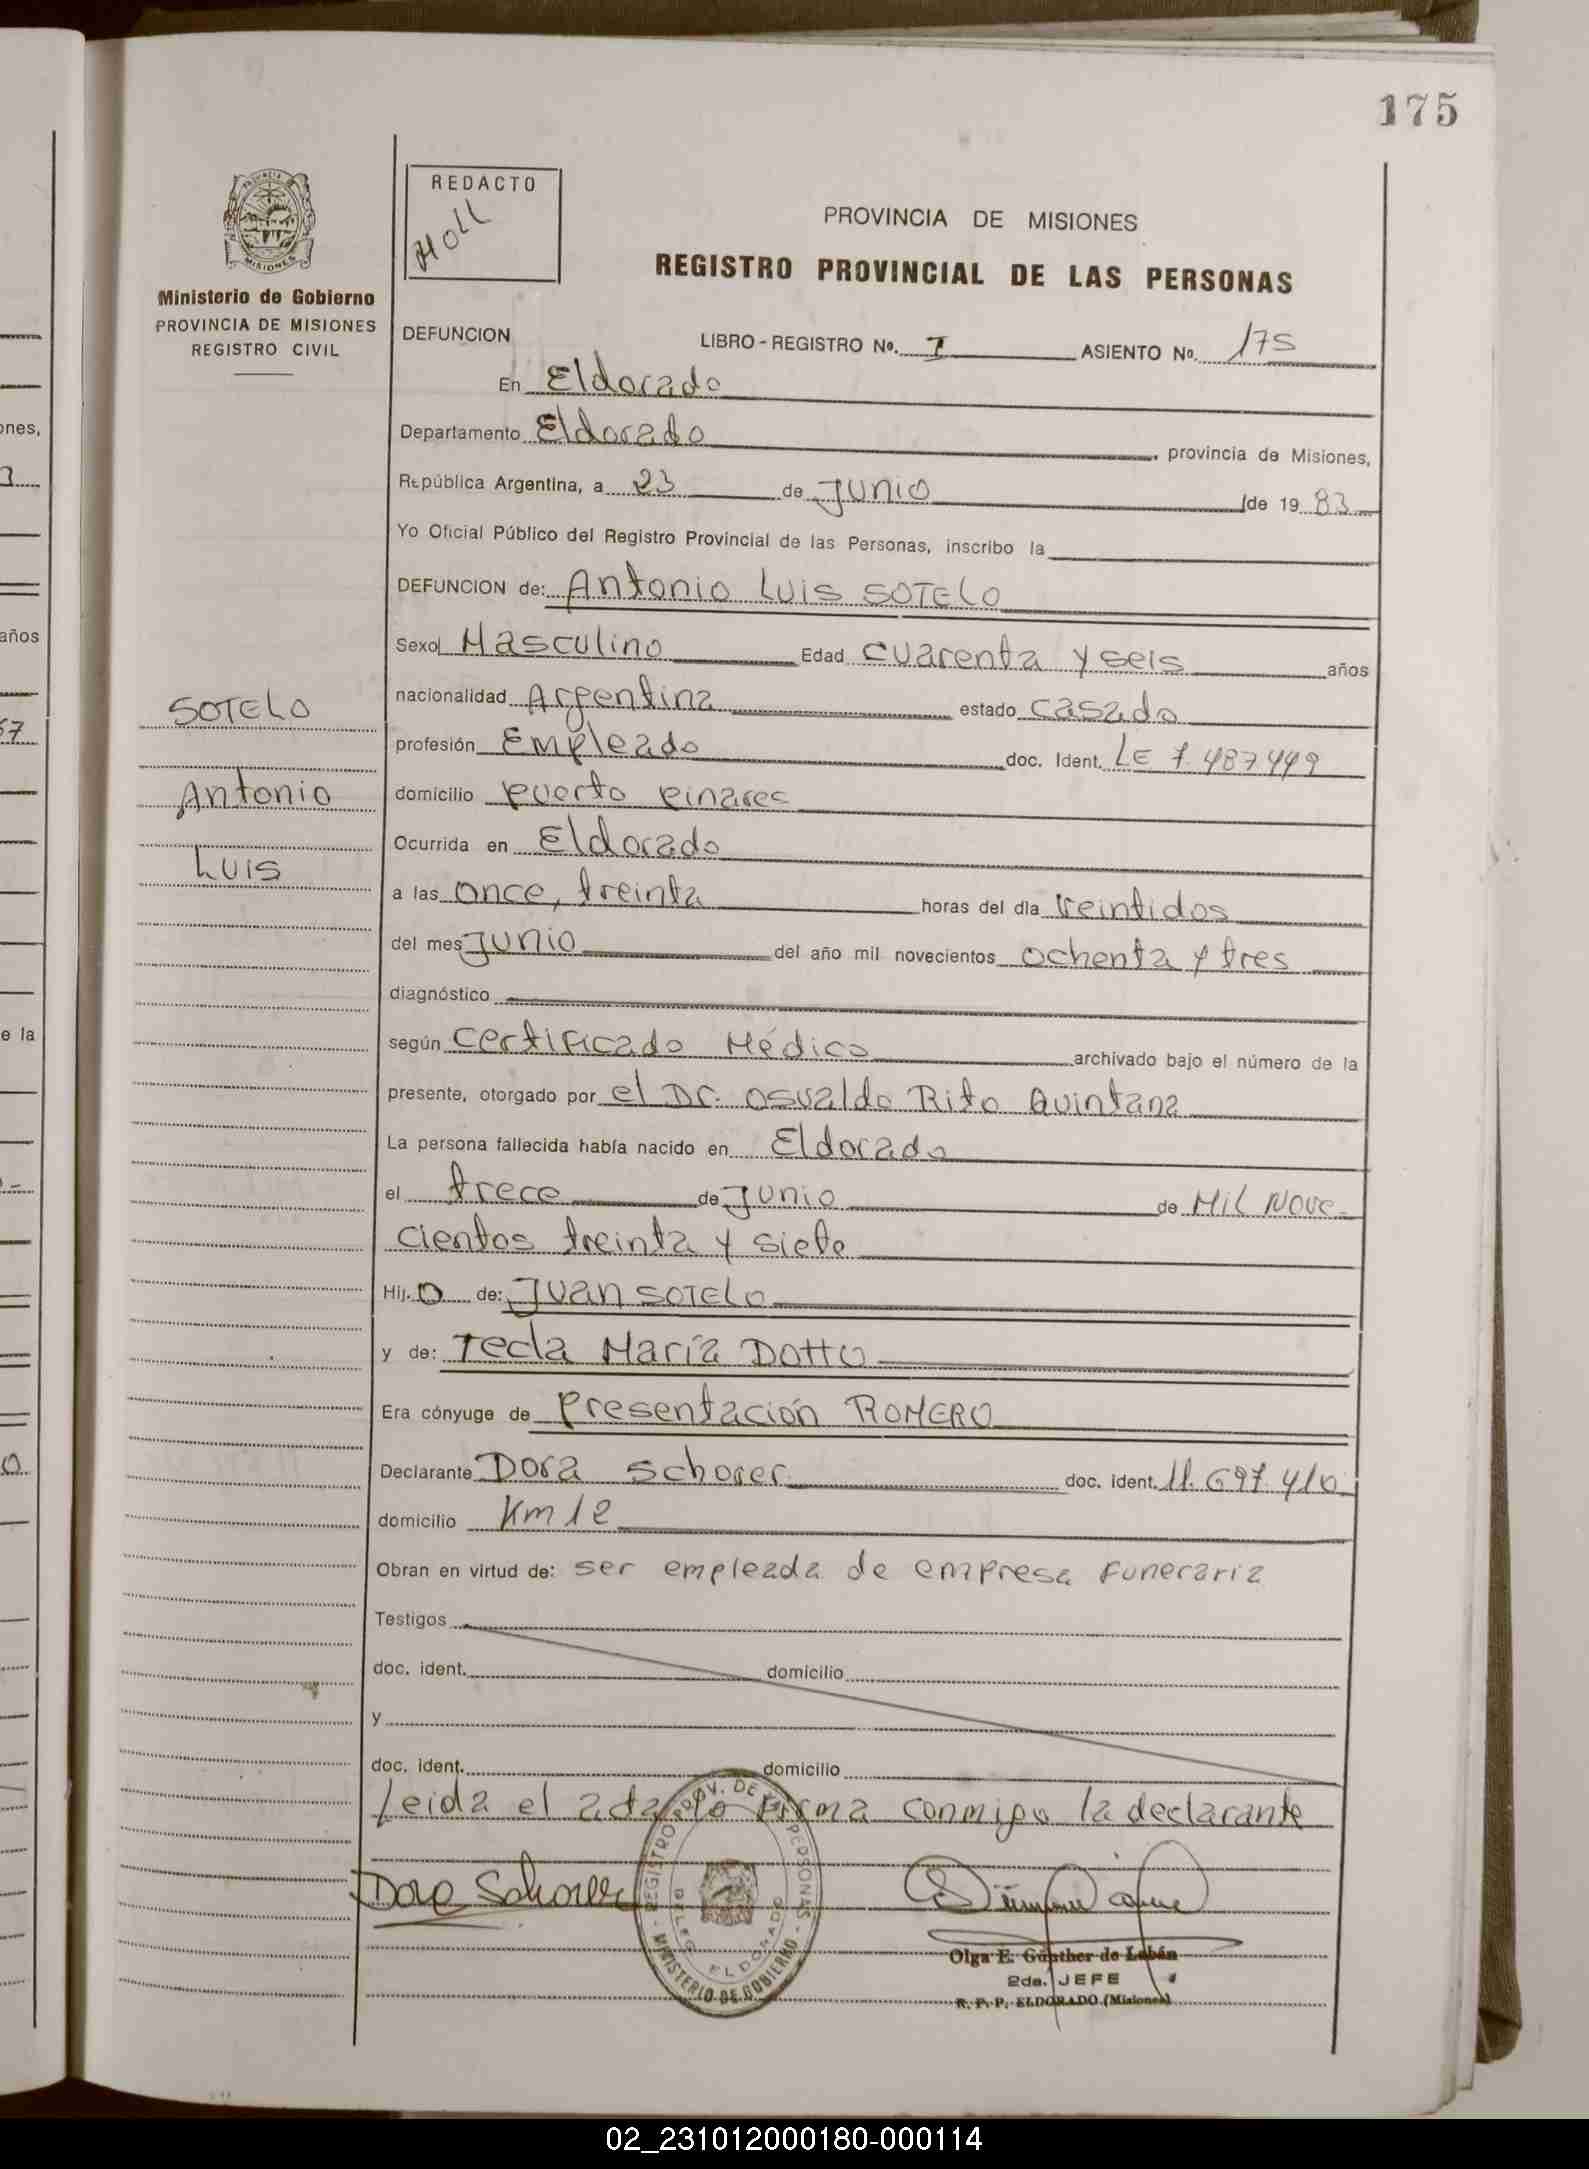 175
REDACTO
Holl
PROVINCIA DE MISIONES
REGISTRO PROVINCIAL DE LAS PERSONAS
Ministerio de Gobierno
PROVINCIA DE MISIONES
REGISTRO CIVIL
DEFUNCION LIBRO - REGISTRO Nº. I ASIENTO Nº. 175
En Eldorado
Departamento Eldorado, provincia de Misiones,
República Argentina, a 23 de Junio de 19 83
Yo Oficial Público del Registro Provincial de las Personas, inscribo la
DEFUNCION de: Antonio Luis SOTELO
Sexo Masculino Edad cuarenta y seis años
nacionalidad Argentina estado casado
profesión Empleado doc. Ident. LE 7.487449
domicilio Puerto Pinares
Ocurrida en Eldorado
a las once, treinta horas del día veintidos
del mes Junio del año mil novecientos ochenta y tres
diagnóstico
según Certificado Médico archivado bajo el número de la
presente, otorgado por el Dr. Osvaldo Rito Quintana
La persona fallecida había nacido en Eldorado
el trece de Junio de Mil Nove-
cientos treinta y siete
Hij.o de: Juan SOTELO
y de: Tecla María Dotto
Era cónyuge de Presentación ROMERO
Declarante Dora Schorer doc. ident. 11.697.410
domicilio Km 12
Obran en virtud de: ser empleada de empresa funeraria
Testigos
doc. ident. domicilio
y
doc. ident. domicilio
Leida el acta lo firma conmigo la declarante
SOTELO
Antonio
Luis
Dora Schorer
REGISTRO PROV. DE LAS PERSONAS
DELEG. ELDORADO
MINISTERIO DE GOBIERNO
Olga E. Günther de Lobán
2da. JEFE
R. P. P. ELDORADO (Misiones)
ones,
3
años
67
e la
02_231012000180-000114